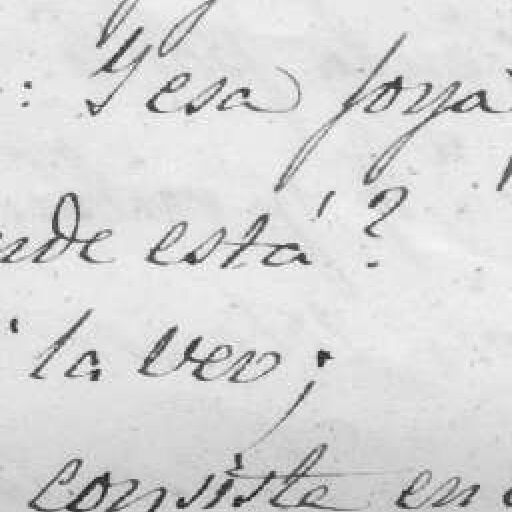 : Y esa joya
nde está?
la veo;
consiste en